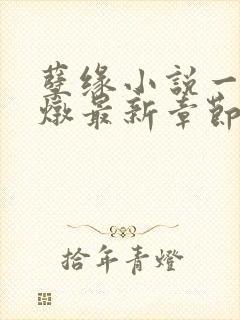 孽缘小說一
燉最新章節
拾年青燈